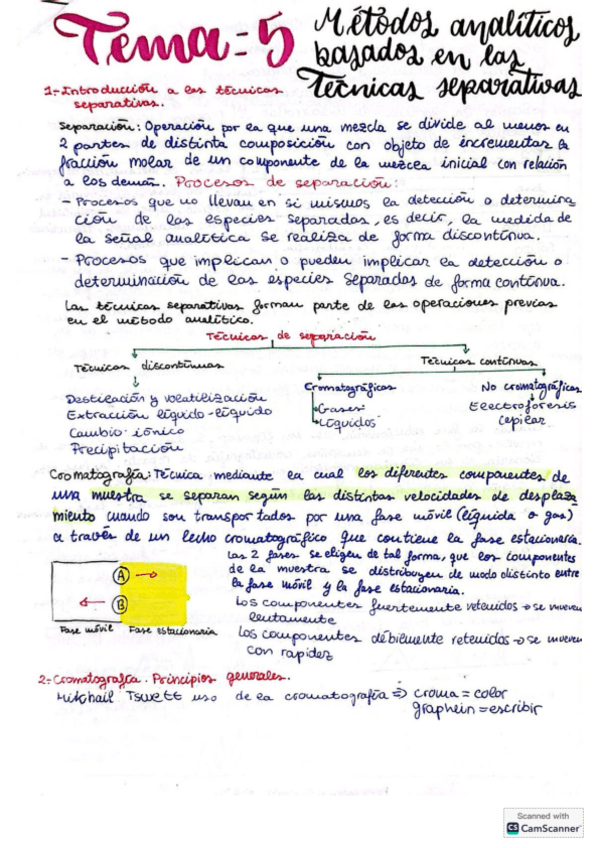 Tema=5 Métodos analíticos
basados en las
Técnicas separativas
1.-Introducción a las técnicas
separativas.
Separación: Operación por la que una mezcla se divide al menos en
2 partes de distinta composición con objeto de incrementar la
fracción molar de un componente de la mezcla inicial con relación
a los demás. Procesos de separación:
- Procesos que no llevan en si mismos la detección o determina
ción de las especies separadas, es decir, la medida de
la señal analítica se realiza de forma discontínua.
- Procesos que implican o pueden implicar la detección o
determinación de las especies separadas de forma contínua.
Las técnicas separativas forman parte de las operaciones previas
en el método analítico.
Técnicas de separación
Técnicas discontínuas
Técnicas contínuas
Destilación y volatilización
Extracción líquido-líquido
Cambio iónico
Precipitación
Cromatográficas
Gases
Líquidos
No cromatográficas
Electroforesis
capilar
Cromatografía: Técnica mediante la cual los diferentes componentes de
una muestra se separan según las distintas velocidades de desplaza
miento cuando son transportados por una fase móvil (líquida o gas)
a través de un lecho cromatográfico que contiene la fase estacionaria.
Las 2 fases se eligen de tal forma, que los componentes
de la muestra se distribuyen de modo distinto entre
la fase móvil y la fase estacionaria.
A
B
Fase móvil Fase estacionaria
Los componentes fuertemente retenidos → se mueven
lentamente
Los componentes débilmente retenidos → se mueven
con rapidez
2.-Cromatografía. Principios generales.
Mikhail Tswett uso de la cromatografía ⇒ croma = color
graphein = escribir
Scanned with
CS CamScanner